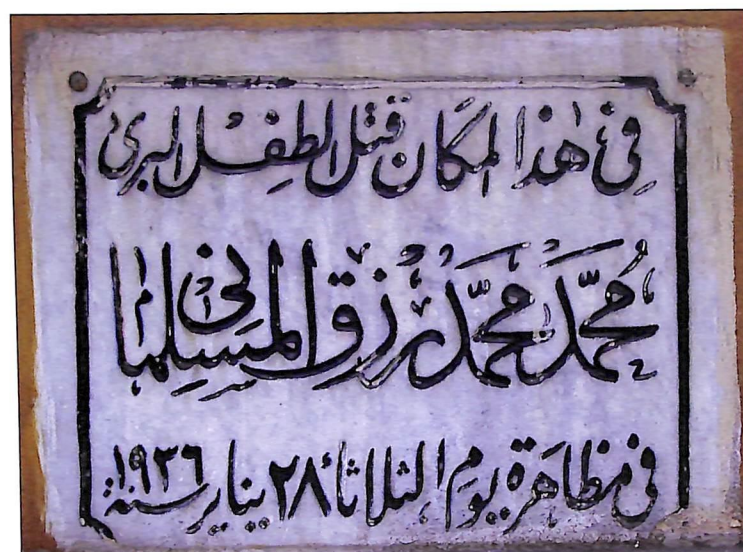 في هذا المكان قتل الطفل البرئ
محمد محمد رزق المسلمانى
فى مظاهرة يوم الثلاثاء ٢٨ يناير سنة ١٩٣٦